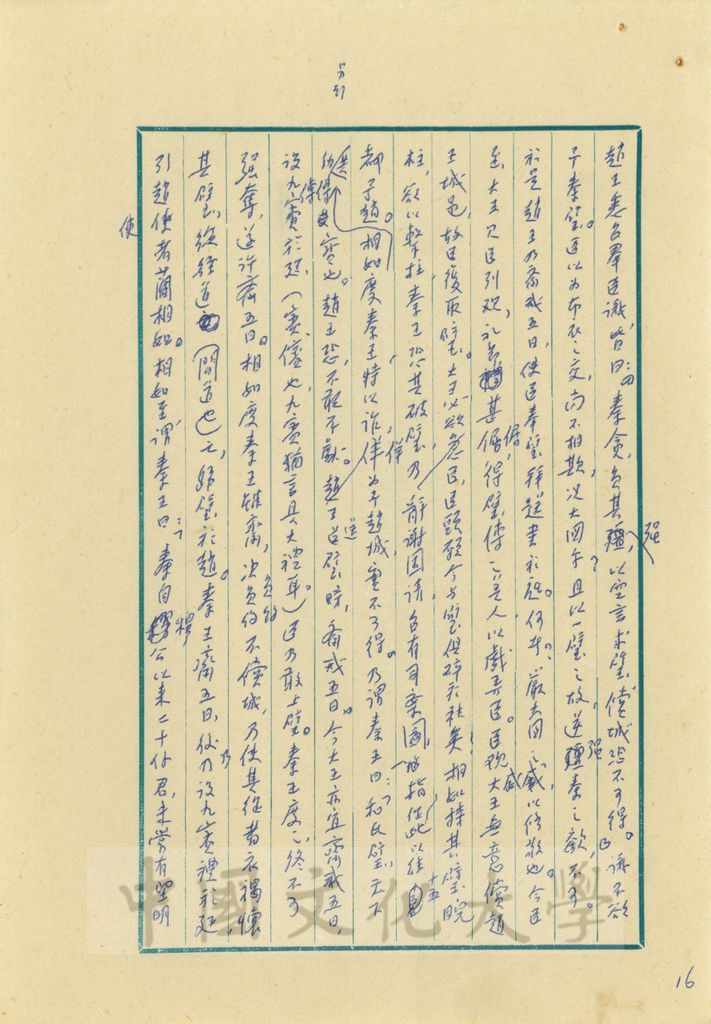 另引
趙王悉召羣臣議,皆曰:「秦貪,負其彊強,以空言求璧,償城恐不可得。議不欲
予秦璧。臣以為布衣之交,尚不相欺,況大國乎?且以一璧之故,逆彊強秦之歡,不可。
於是趙王乃齋戒五日,使臣奉璧,拜送書於庭。何者?嚴大國之威以修敬也。今臣
至,大王見臣列觀,禮節甚倨倨;得璧,傳之美人,以戲弄臣。臣觀大王無意償趙
王城邑,故臣復取璧。大王必欲急臣,臣頭願今與璧俱碎於柱矣!相如持其璧睨
柱,欲以擊柱。秦王恐其破璧,乃辭謝固請,召有司案圖,指從此以往十五
都予趙。相如度秦王特以詐佯佯為予趙城,實不可得。乃謂秦王曰:「和氏璧,天下
所共傳寶也。趙王恐,不敢不獻。趙王送璧時,齋戒五日。今大王亦宜齋戒五日,
設九賓於廷,(賓,儐也,九賓猶言具大禮耳)臣乃敢上璧。秦王度之,終不可
強奪,遂許齋五日。相如度秦王雖齋,決負約不償城,乃使其從者衣褐懷
其璧,從徑道(間道也)亡,歸璧於趙。秦王齋五日後,乃設九賓禮於廷,
引趙使者藺相如。相如至,謂秦王曰:「秦自穆公以來二十餘君,未嘗有堅明
使
中國文化大學
16